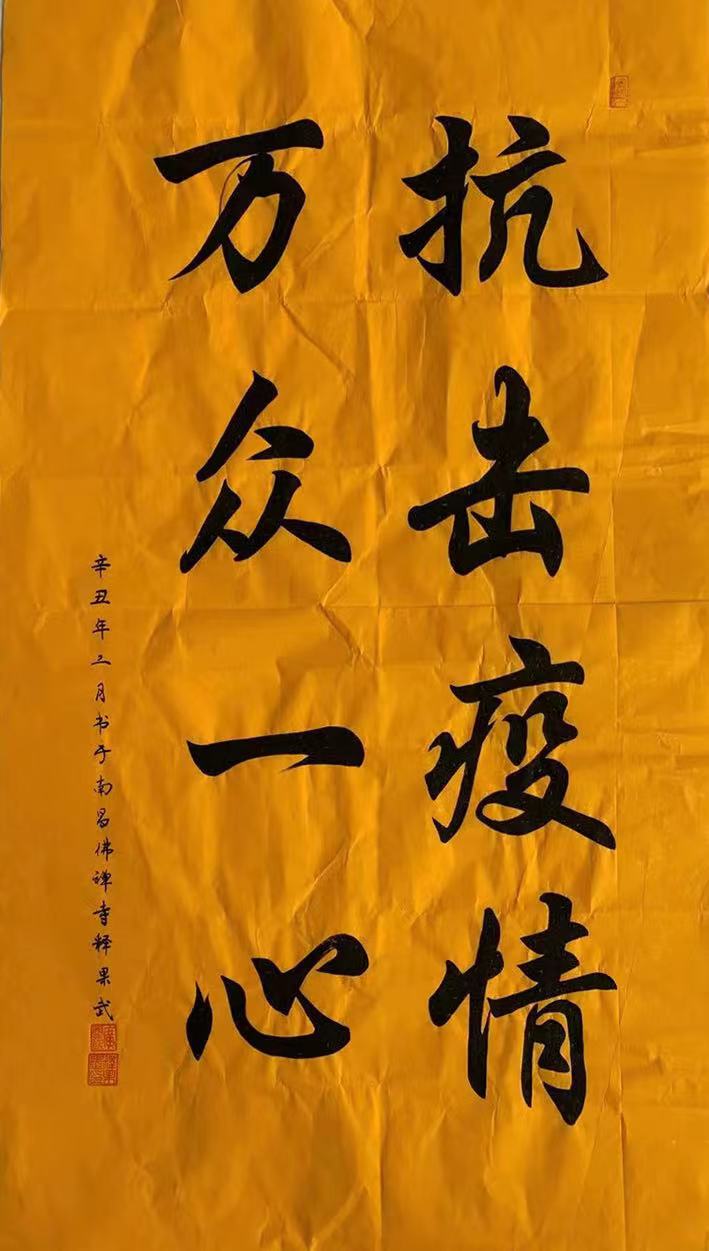 抗击疫情
万众一心
辛丑年三月书于南昌佛禅寺释果武